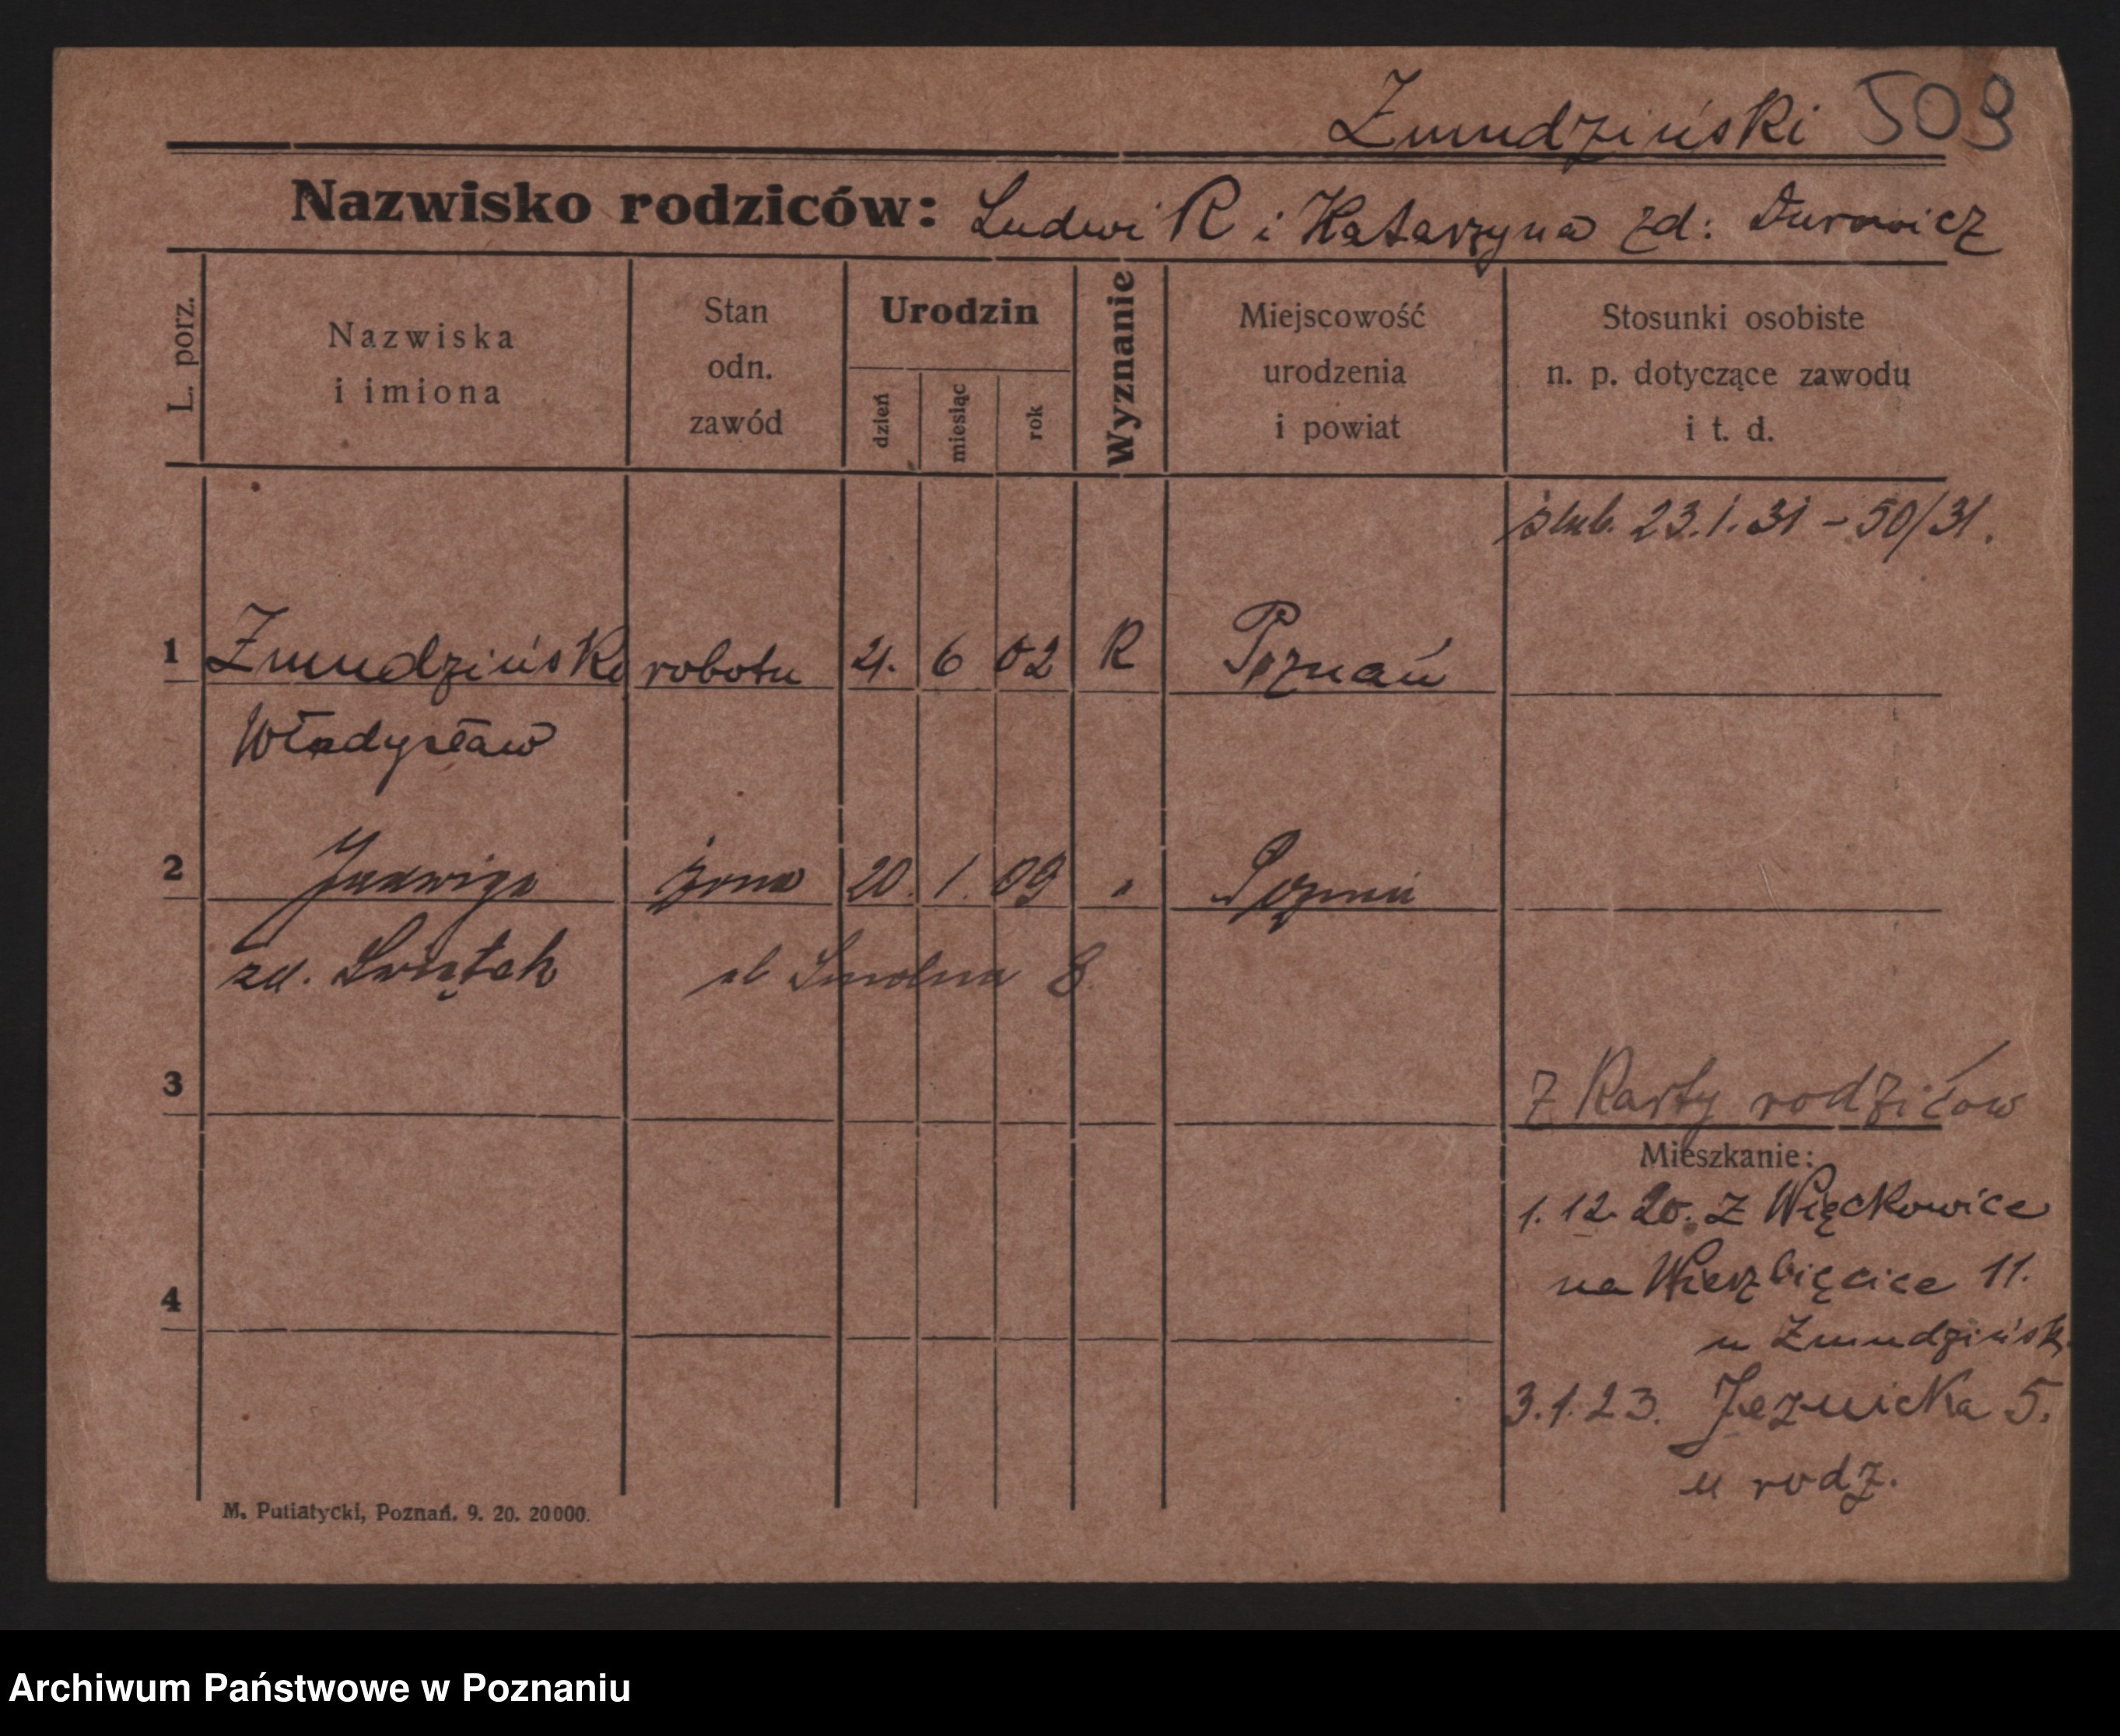 Żmudziński 509
Nazwisko rodziców: Ludwik i Katarzyna zd: Durowicz
L. porz.
Nazwiska
i imiona
Stan
odn.
zawód
Urodzin
dzień
miesiąc
rok
Wyznanie
Miejscowość
urodzenia
i powiat
Stosunki osobiste
n. p. dotyczące zawodu
i t. d.
ślub. 23.1.31 - 50/31.
1 Żmudziński robotn 4. 6 02 R Poznań
Władysław
2 Jadwiga żona 20. 1. 09 " Poznań
zd. Świątek ul Smolna 8.
3
z Karty rodziców
Mieszkanie:
1. 12. 20. z Więckowice
na Wierzbięcice 11.
4
u Żmudzińsk.
3.1.23. Jeznicka 5.
u rodz.
M. Putiatycki, Poznań. 9. 20. 20000.
Archiwum Państwowe w Poznaniu